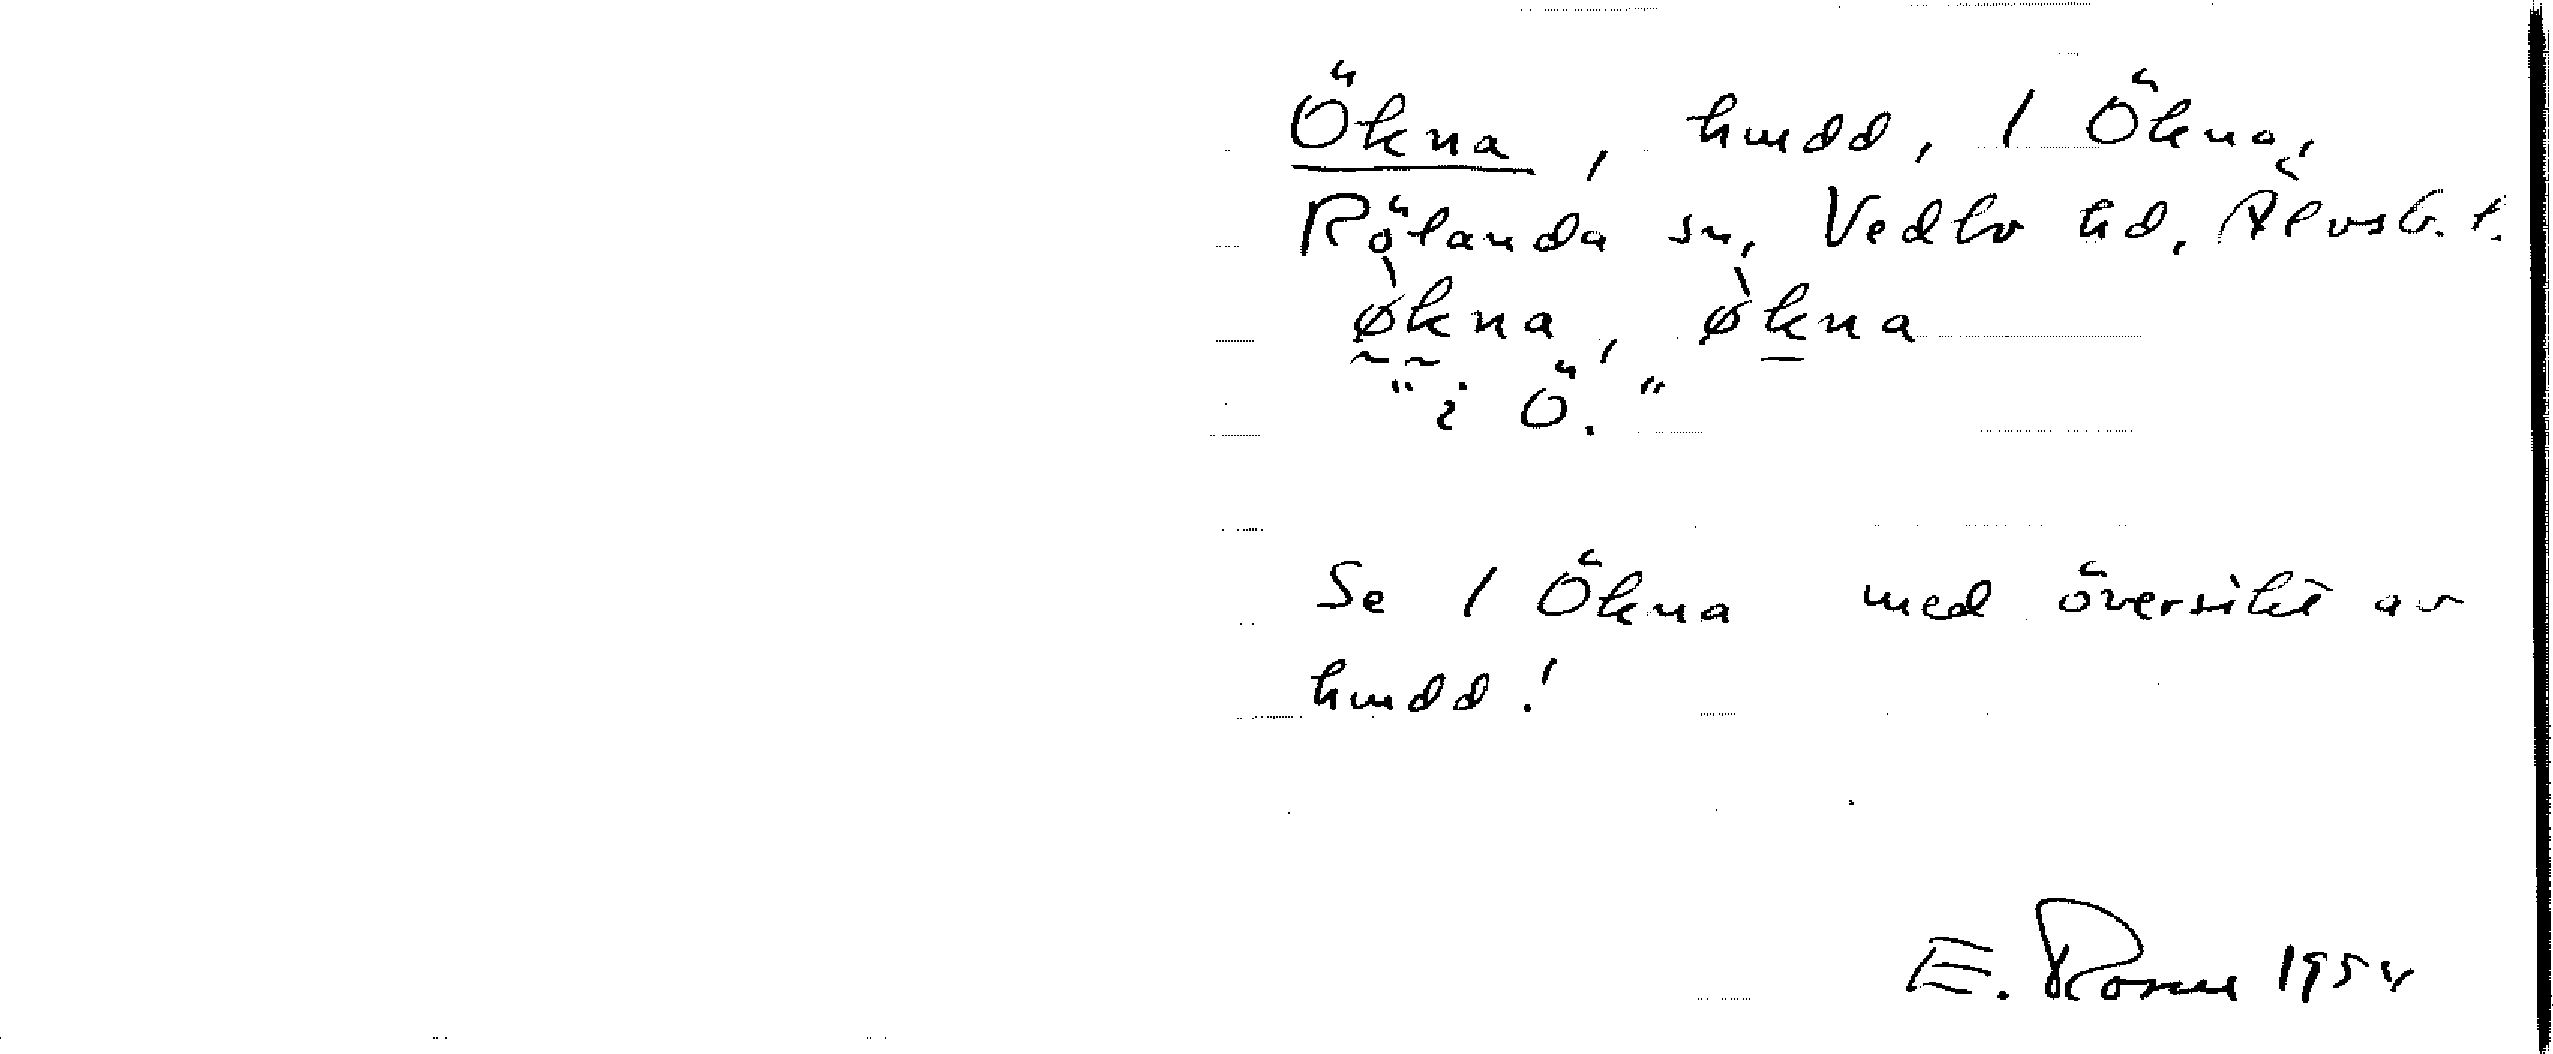 Ökna, hmdd, 1 Ökna,
Rölanda sn, Vedbo hd, Älvsb. l.
ø̀kna, ø̀kna
"i Ö."
Se 1 Ökna med översikt av
hmdd!
E. Rosell 1954